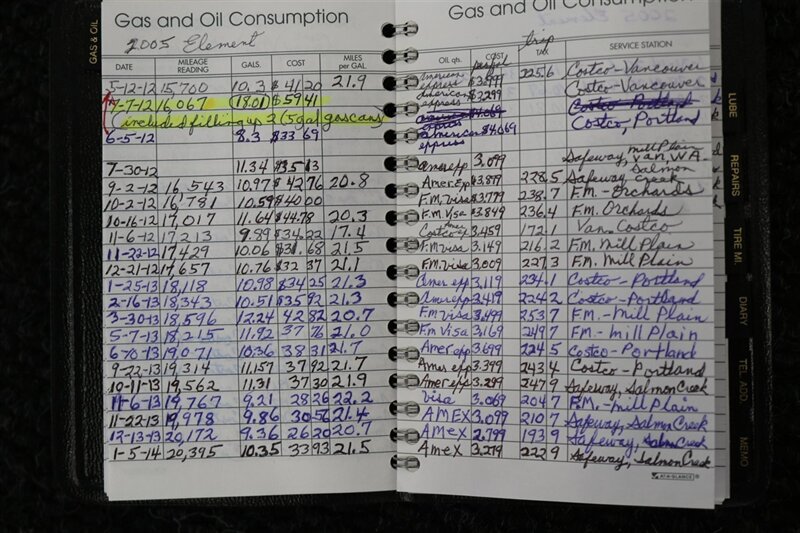 Gas and Oil Consumption
2005 Element
DATE MILEAGE READING GALS. COST MILES per GAL.
5-12-12 15,700 10.3 $41 20 21.9
7-7-12 16,067 (18.01) $59 41
(included filling up 2 (5 gal gas cans)
6-5-12 8.3 $33 69
7-30-12 11.34 $35 13
9-2-12 16,543 10.97 $42 76 20.8
10-2-12 16,781 10.59 $40 00
10-16-12 17,017 11.64 $44.78 20.3
11-6-12 17,213 9.89 $34.22 17.4
11-22-12 17,429 10.06 $31.68 21.5
12-21-12 17,657 10.76 $32 37 21.1
1-25-13 18,118 10.98 $34 25 21.3
2-16-13 18,343 10.51 $35 92 21.3
3-30-13 18,596 12.24 42 82 20.7
5-7-13 18,215 11.92 37 76 21.0
6-20-13 19,071 10.36 38 31 21.7
9-22-13 19,314 11.157 37 92 21.7
10-11-13 19,562 11.31 37 30 21.9
11-6-13 19,767 9.21 28 26 22.2
11-22-13 19,978 9.86 30 56 21.4
12-13-13 20,172 9.36 26 20 20.7
1-5-14 20,395 10.35 33 93 21.5
GAS & OIL
Gas and Oil Consumption
2005 Element
trip
OIL qts. COST TAX SERVICE STATION
American express $3.999 225.6 Costco-Vancouver
American express $3.299 Costco-Vancouver
Costco-Portland
American express $4.069 Costco, Portland
Amer exp 3.099 Safeway, mill Plain Van, WA.
Amer Exp $3.899 228.5 Safeway Salmon Creek
F.M. Visa $3.779 238.7 F.M. - Orchards
F.M. Visa $3.849 236.4 F.M. Orchards
Costco 3.459 172.1 Van. Costco
F.M Visa 3.149 216.2 F.M. Mill Plain
F.M. Visa 3.009 227.3 F.M. Mill Plain
Amer exp 3.119 234.1 Costco-Portland
Amer exp 3.419 224.2 Costco-Portland
F.M Visa 3.499 253.7 F.M. - Mill Plain
Fm Visa 3.169 249.7 F.M. - Mill Plain
Amer exp 3.699 224.5 Costco-Portland
Amer exp 3.399 243.4 Costco-Portland
Amer exp 3.299 247.9 Safeway, Salmon Creek
Visa 3.069 204.7 F.M. - Mill Plain
AMEX 3.099 210.7 Safeway, Salmon Creek
AMEX 2.799 193.9 Safeway, Salmon Creek
AMEX 3.279 222.9 Safeway, Salmon Creek
AT-A-GLANCE®
LUBE
REPAIRS
TIRE MI.
DIARY
TEL. ADD.
MEMO